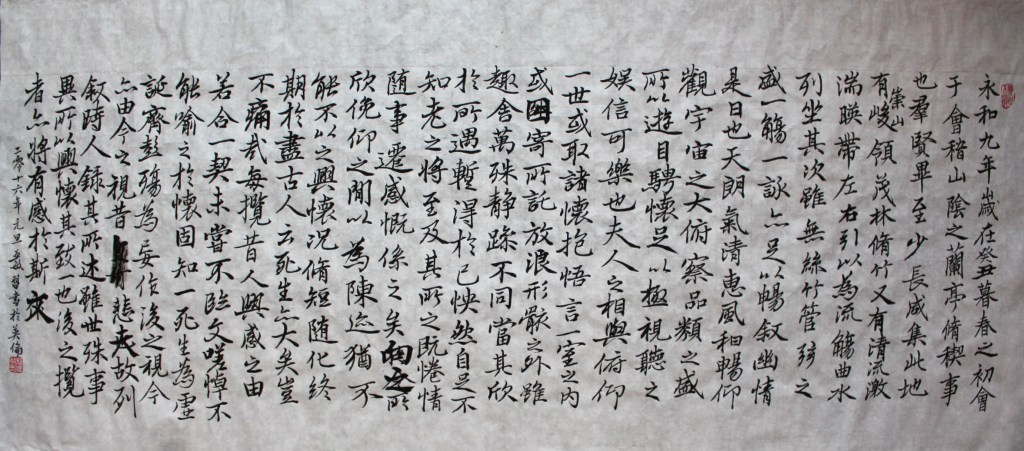 永和九年歲在癸丑暮春之初會
于會稽山陰之蘭亭脩稧事
也羣賢畢至少長咸集此地
有崇山峻領茂林脩竹又有清流激
湍暎帶左右引以為流觴曲水
列坐其次雖無絲竹管弦之
盛一觴一詠亦足以暢敘幽情
是日也天朗氣清惠風和暢仰
觀宇宙之大俯察品類之盛
所以遊目騁懷足以極視聽之
娛信可樂也夫人之相與俯仰
一世或取諸懷抱悟言一室之內
或因寄所託放浪形骸之外雖
趣舍萬殊静躁不同當其欣
於所遇暫得於己怏然自足不
知老之將至及其所之既惓情
随事遷感慨係之矣向之所
欣俛仰之閒以為陳迹猶不
能不以之興懷況脩短隨化終
期於盡古人云死生亦大矣豈
不痛哉每攬昔人興感之由
若合一契未嘗不臨文嗟悼不
能喻之於懷固知一死生為虛
誕齊彭殤為妄作後之視今
亦由今之視昔悲夫故列
敘時人錄其所述雖世殊事
異所以興懷其致一也後之攬
者亦將有感於斯文
二零一六年元旦書於英倫